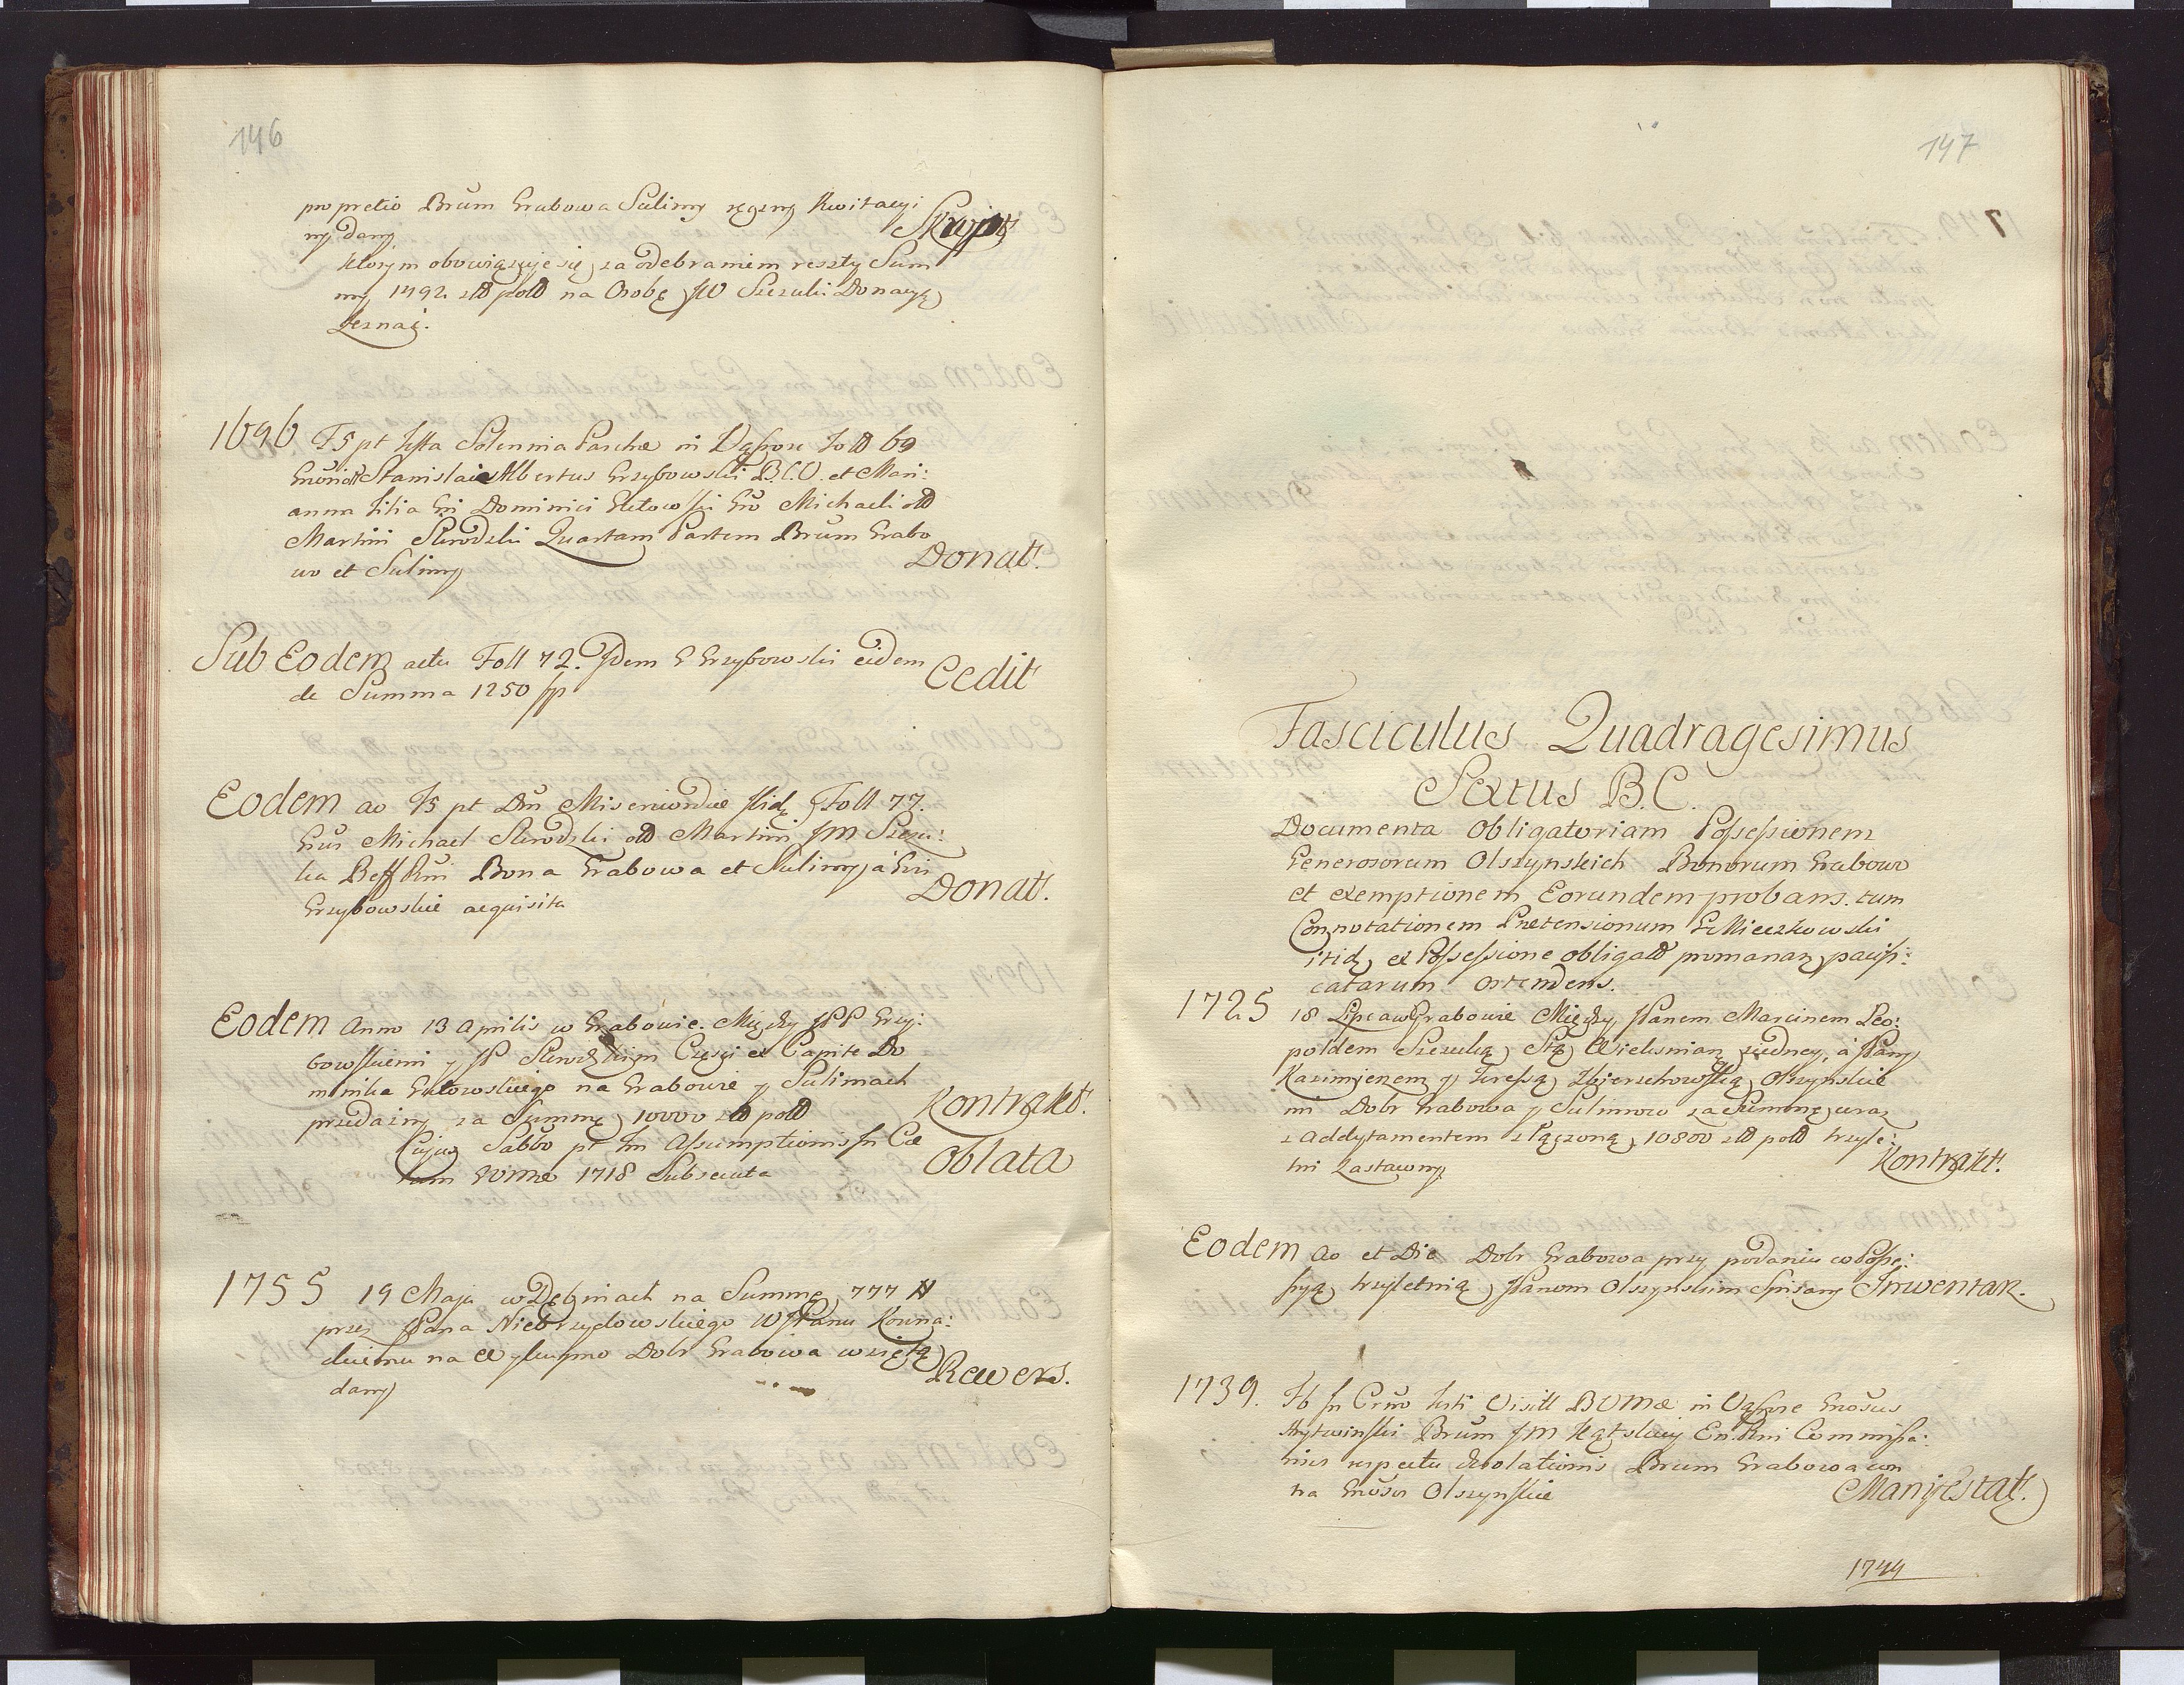 146
pro pretio Bnum Grabowa Sulimy ręczny Kwitacyi
ny dany Skrypt
ktorym obowiązuje się za odebraniem reszty Sum
my 1492 złł poll na Osobę JW Szczuki Donacyą
Zeznać.
1696 F5 pt Festa Solennia Paschæ in Wąsosz Foll 69
Stanislai Albertus Grzybowski B.C.V. et Mari:
anna Filia Gsi Dominici Glitowski Gso Michaeli oll
Martini Skrodzki Quartam Partem Bnum Grabo
wo et Sulimy Donat.
Sub Eodem actu Foll 72. Idem G Grzybowski eidem
de Summa 1250 fp Cedit
Eodem ao F5 pt Dnm Misericordiæ ibid Foll 77.
Gsus Michael Skrodzki oll Martini JM Szczu:
ka Reff Rni Bona Grabowa et Sulimy à Gsi
Grzybowskie acquisita Donat.
Eodem Anno 13 Aprilis w Grabowie. Między JPP Grzy:
bowskiemi y JP Skrodzkim Części ex Capite Do
minika Glitowskiego na Grabowie y Sulimach
przedażny za Summę 10000 złł poll Kontrakt.
Cujus Sabbo pt Fm Assumptionis in Cæ
lum BVMæ 1718 Subsecuta Oblata
1755 19 Maja w Dębinach na Summę 777 #
przez JPana Niebrzydowskiego W JPanu Konna:
ckiemu na Wykupno Dobr Grabowa wziętą
dany Rewers.
147
Fasciculus Quadragesimus
Sextus B.C.
Documenta Obligatoriam Possessionem
Generosorum Olszynskich Bonorum Grabowo
et exemptionem Eorundem probans. tum
Connotationem Prætensionum G Mieczkowski
itidę ex Possessione obligall promanan pacifi:
catarum ostendens.
1725 18 Lipca w Grabowie Między JPanem Marcinem Leo:
poldem Szczuką Stą Wielisnian z jedney, à JPany
Kazimierzem y Teressą Zbierzchowską Olszynskie
mi Dobr Grabowa y Sulimow za Summę wraz
z Addytamentem złączoną 10800 złł poll trzyle:
tni Zastawny Kontrakt.
Eodem ao et Die Dobr Grabowa przy podaniu w Posse:
syą trzyletnią JPanom Olszynskim Spisany Inwentarz.
1739. F6 in Crno Festi Visitt BVMæ in Wąsosz Gnosus
Hrytwinski Bnum JM Kątskiey En. Rni Commissa:
rius respectu devolationis Bnum Grabowa con
tra Gnosos Olszynskie Manifestat.
1744